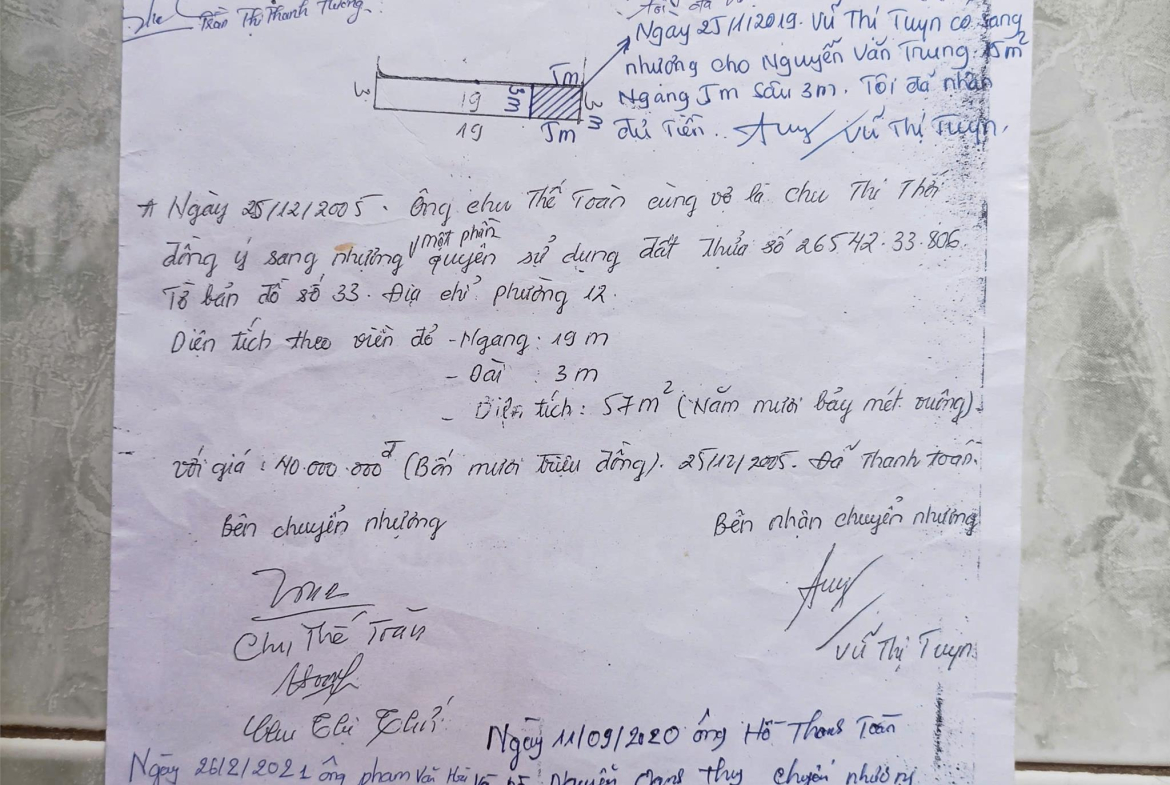 Trần Thị Thanh Tường.
Ngày 25/11/2019. Vũ Thị Tuyn có sang
nhương cho Nguyễn Văn Trung. 15m²
Ngang 5m sâu 3m. Tôi đã nhận
đủ Tiền. Vũ Thị Tuyn.
5m
3 19 3m 3m
19 5m
* Ngày 25/12/2005. Ông chu Thế Toàn cùng vợ là chu Thị Thới
một phần
đồng ý sang nhượng quyền sử dụng đất thửa số 26542.33.806.
Tờ bản đồ số 33. Địa chỉ phường 12.
Diện tích theo viền đỏ - Ngang: 19 m
- Dài : 3 m
- Diện tích: 57m² (Năm mươi bảy mét vuông).
với giá: 40.000.000đ (Bốn mươi triệu đồng). 25/12/2005. Đã Thanh toán.
Bên chuyển nhượng Bên nhận chuyển nhương
Chu Thế Toàn
Vũ Thị Tuyn
Chu Thị
Ngày 11/09/2020 ông Hồ Thanh Toàn
Ngày 26/2/2021 ông phạm Văn thuy chuyển nhương